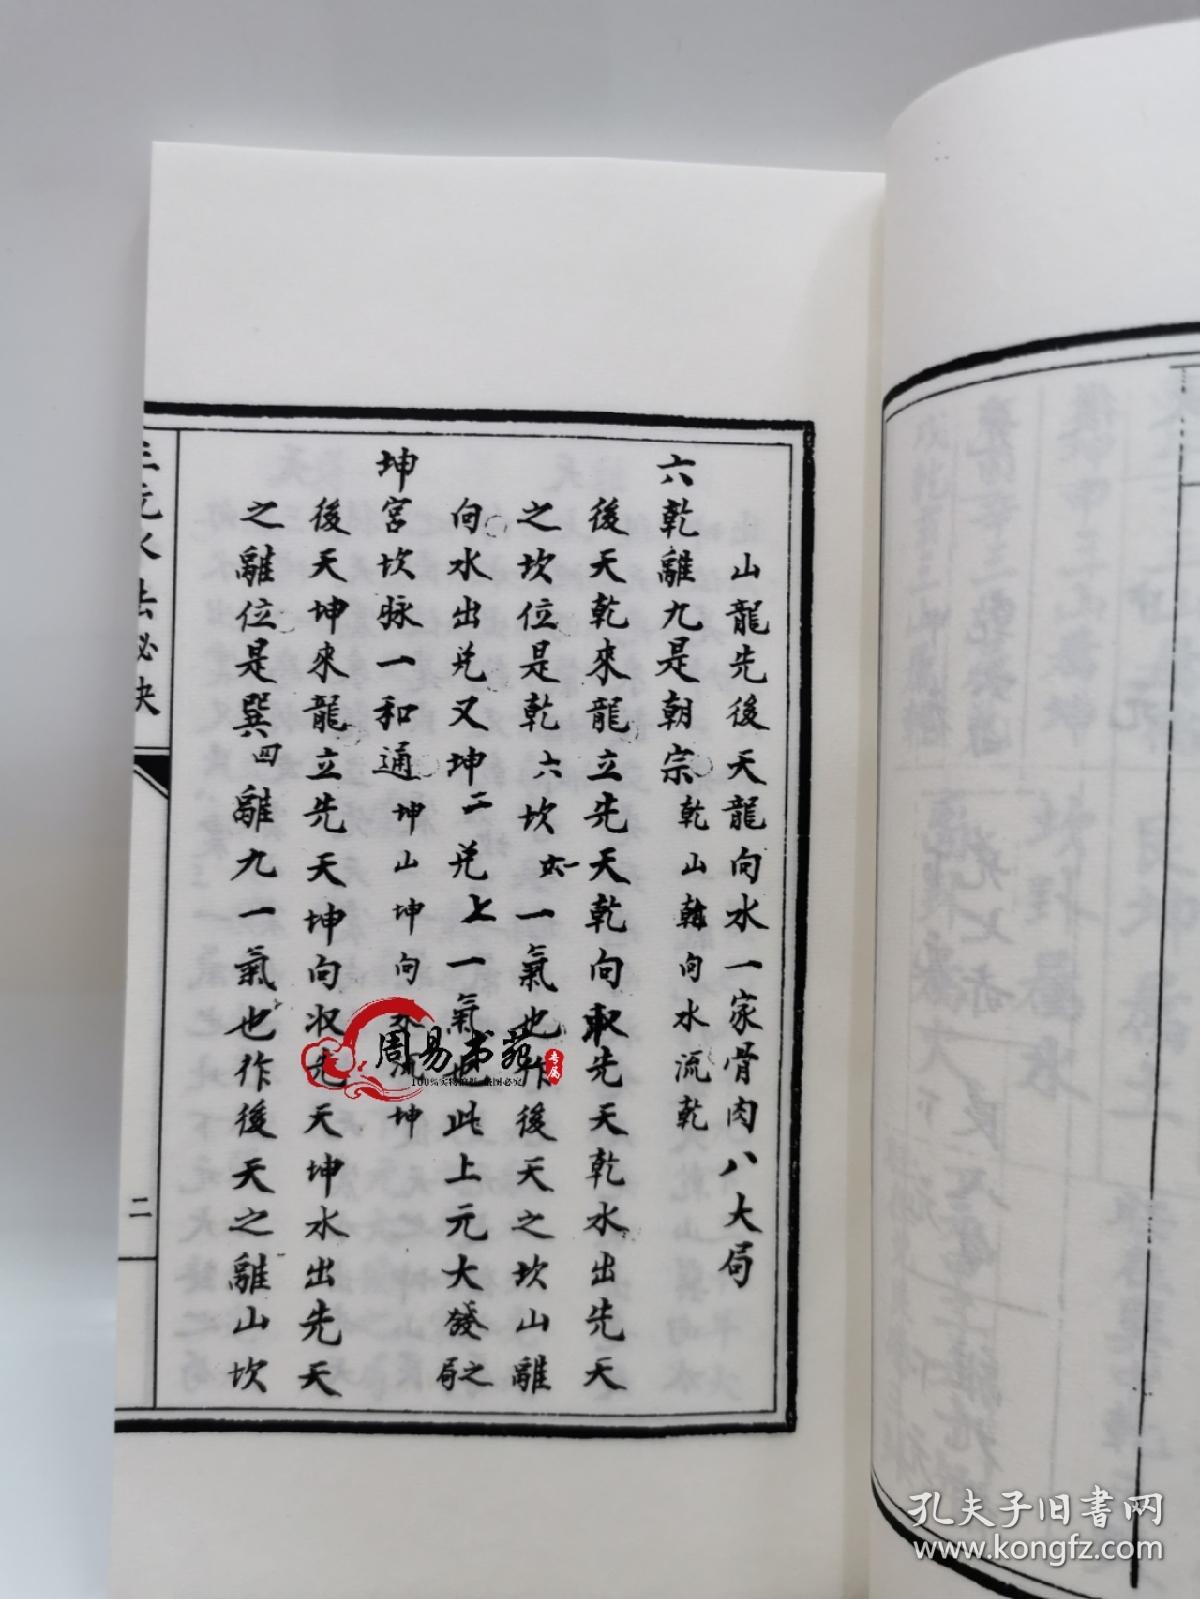 山龍先後天龍向水一家骨肉八大局
六乾離九是朝宗乾山乾向水流乾
後天乾來龍立先天乾向取先天乾水出先天
之坎位是乾六坎一氣也作後天之坎山離
向水出兌又坤二兌上一氣也此上元大發局之
坤宮坎脉一和通坤山坤向水流坤
後天坤來龍立先天坤向收先天坤水出先天
之離位是巽四離九一氣也作後天之離山坎
三元水法必決
二
周易书苑
专属
孔夫子旧書网
www.kongfz.com